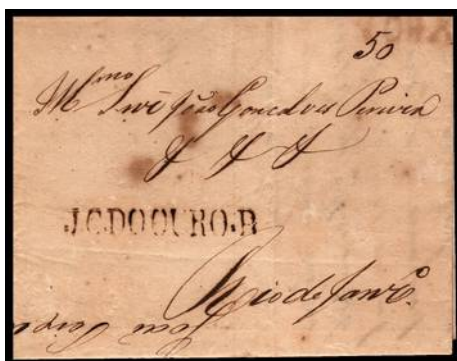 50
Illmo Snr João Gonçalves Pereira
J.C.DO OURO.P.
Rio de Janro.